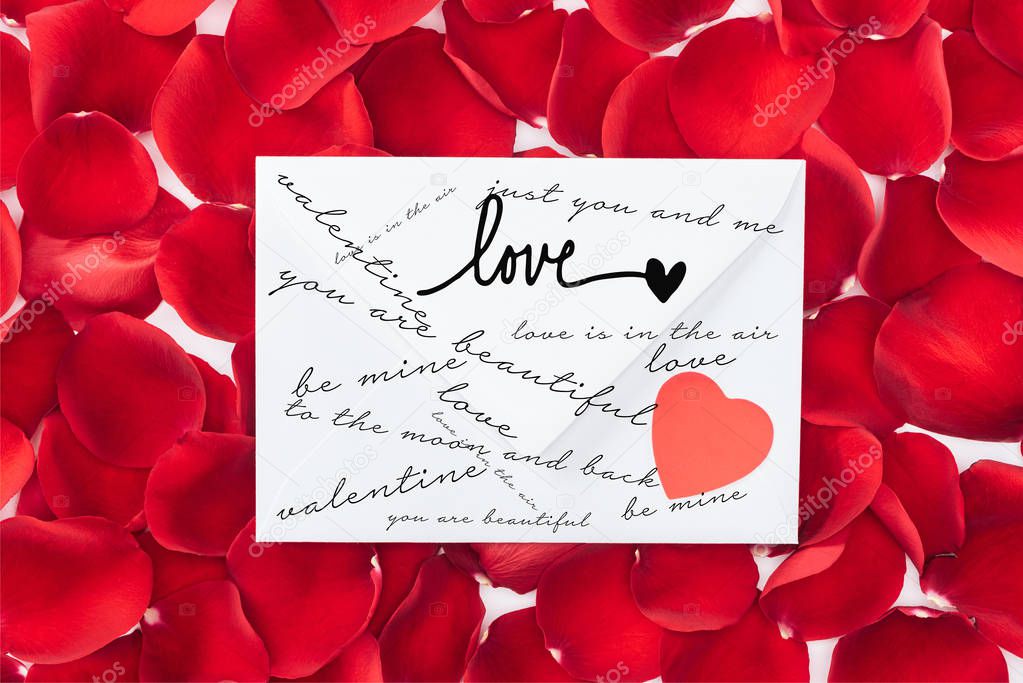 valentine
love is in the air
just you and me
love
you are beautiful
love is in the air
love
be mine
love
to the moon and back
love is in the air
valentine
you are beautiful
be mine
depositphotos
depositphotos
depositphotos
depositphotos
depositphotos
depositphotos
depositphotos
depositphotos
depositphotos